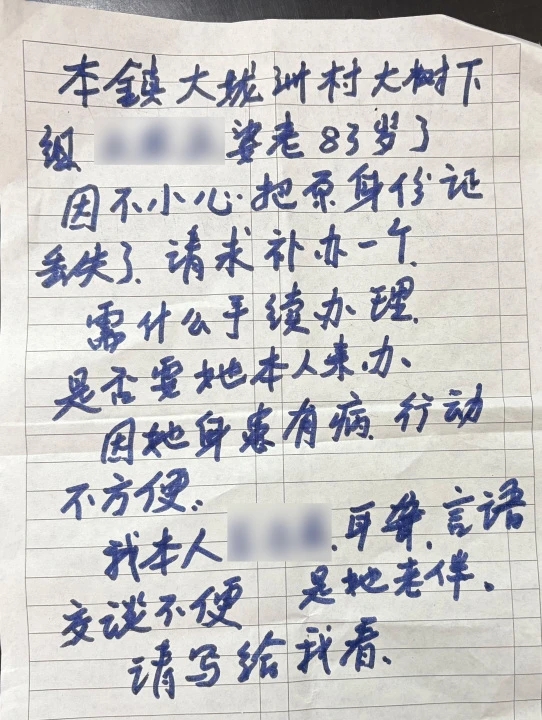 本镇大垅洲村大树下
组 婆老83岁了
因不小心把原身份证
丢失了、请求补办一个、
需什么手续办理、
是否要她本人来办、
因她身患有病、行动
不方便、
我本人 、耳聋、言语
交谈不便 是她老伴、
请写给我看、